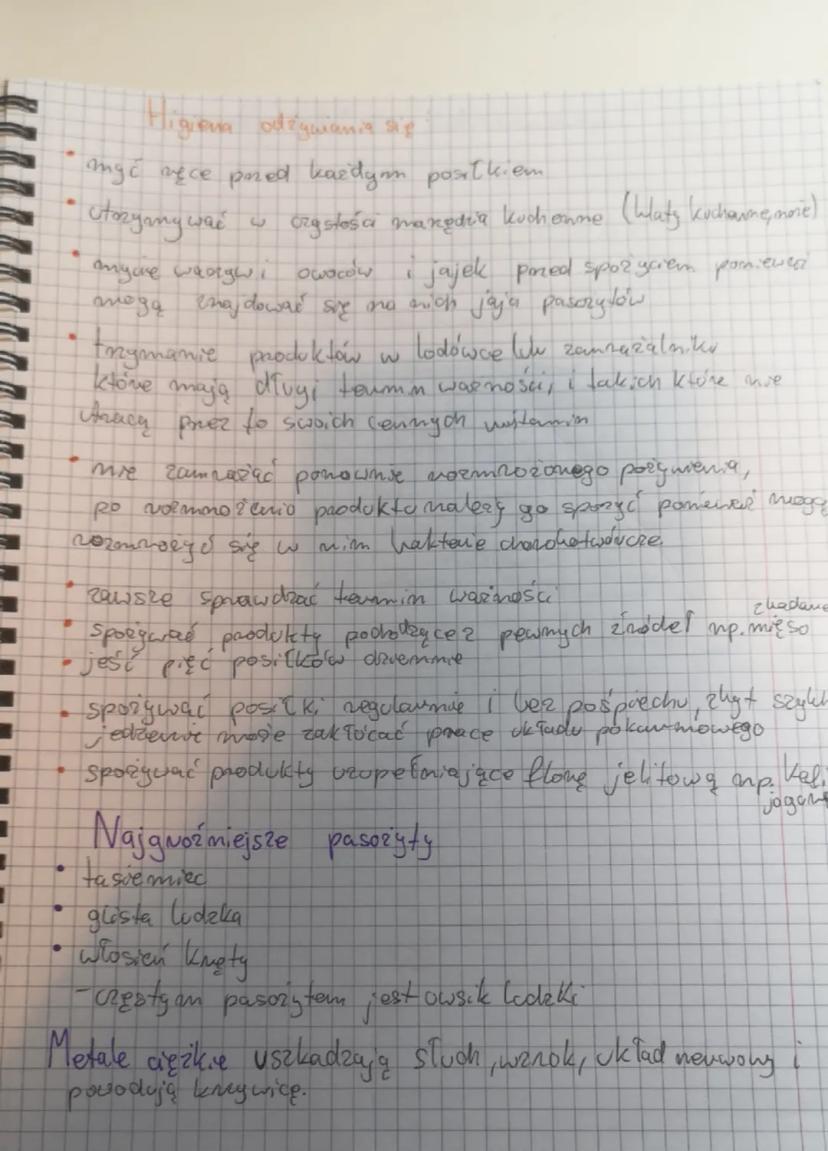 Higiena odżywiania się
• myć ręce przed każdym posiłkiem
• utrzymywać w czystości narzędzia kuchenne (blaty kuchenne, noże)
• mycie warzyw i owoców i jajek przed spożyciem ponieważ
mogą znajdować się na nich jaja pasożytów
• trzymanie produktów w lodówce lub zamrażalniku
które mają długi termin ważności, i takich które nie
tracą przez to swoich cennych witamin
• nie zamrażać ponownie rozmrożonego pożywienia,
po rozmrożeniu produktu należy go spożyć ponieważ mogą
rozmnożyć się w nim bakterie chorobotwórcze.
• zawsze sprawdzać termin ważności
• spożywać produkty pochodzące z pewnych źródeł np. mięso zbadane
• jeść pięć posiłków dziennie
• spożywać posiłki regularnie i bez pośpiechu, zbyt
jedzenie może zakłócać prace układu pokarmowego
• spożywać produkty uzupełniające florę jelitową np.
Najgroźniejsze pasożyty
• tasiemiec
• glista ludzka
• włosień kręty
- częstym pasożytem jest owsik ludzki
Metale ciężkie uszkadzają słuch, wzrok, układ nerwowy i
powodują krzywicę.